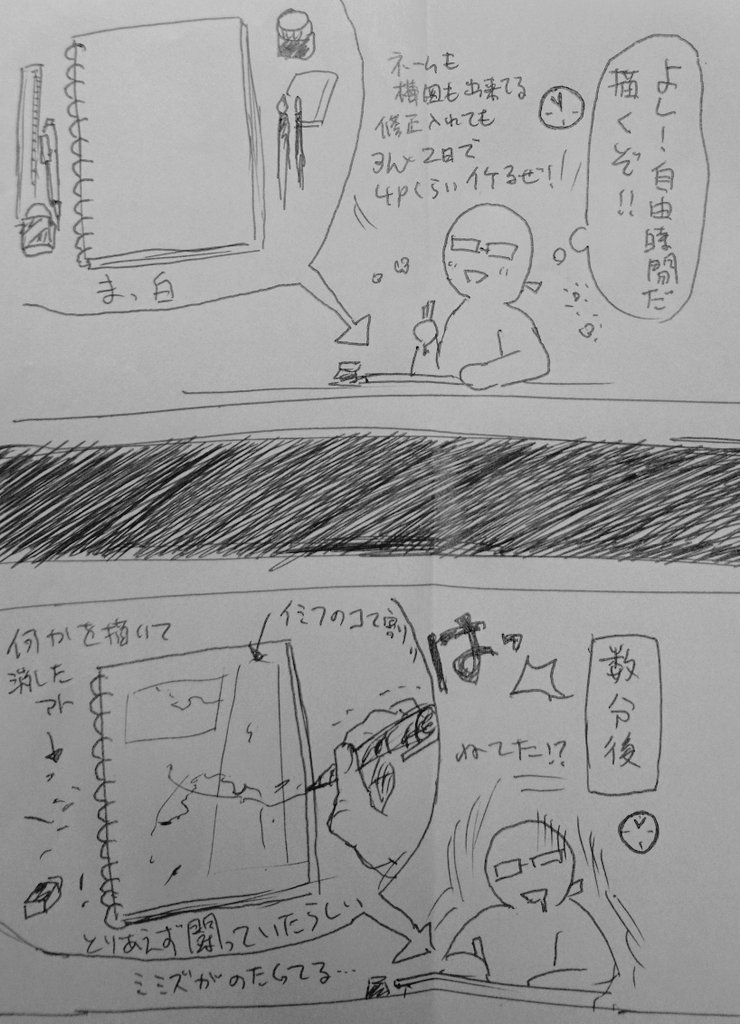 よし！自由時間だ
描くぞ!!
ネームも
構図も出来てる
修正入れても
2日で
4Pくらいイケるぜ!!
まっ白
数分後
はっ
ねてた!?
イミフのコマ割り
何かを描いて
消した
アト
とりあえず闘っていたらしい
ミミズがのたくってる…